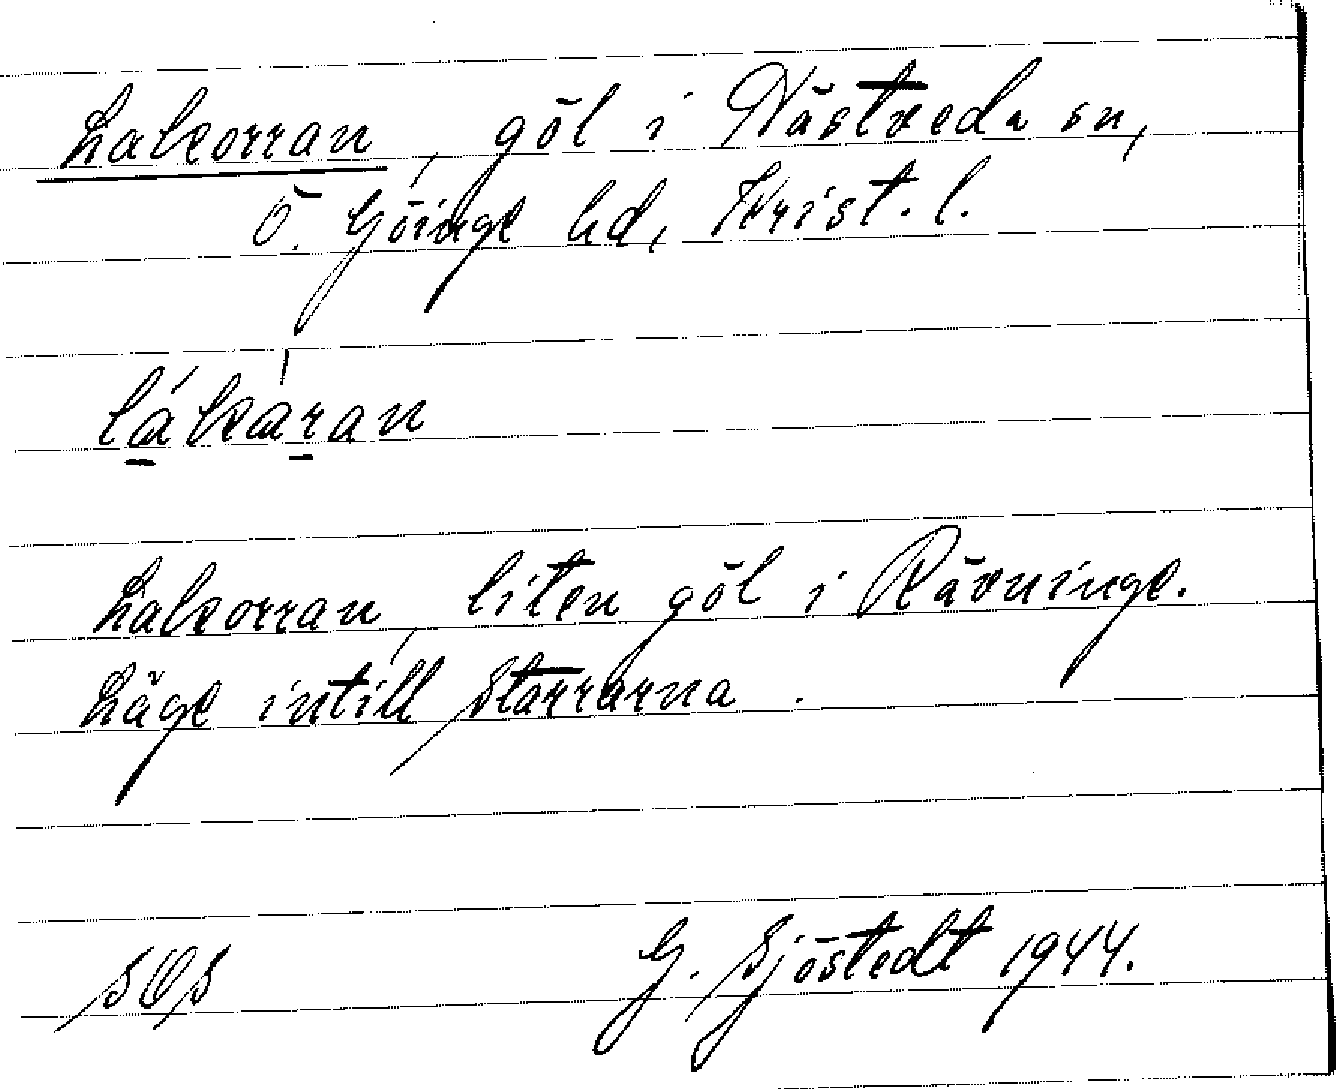 Lakorran, göl i Västveda sn,
Ö. Göinge hd, Krist. l.
Lakorran, liten göl i Rävninge.
Läge intill Starrarna.
G. Sjöstedt 1944.